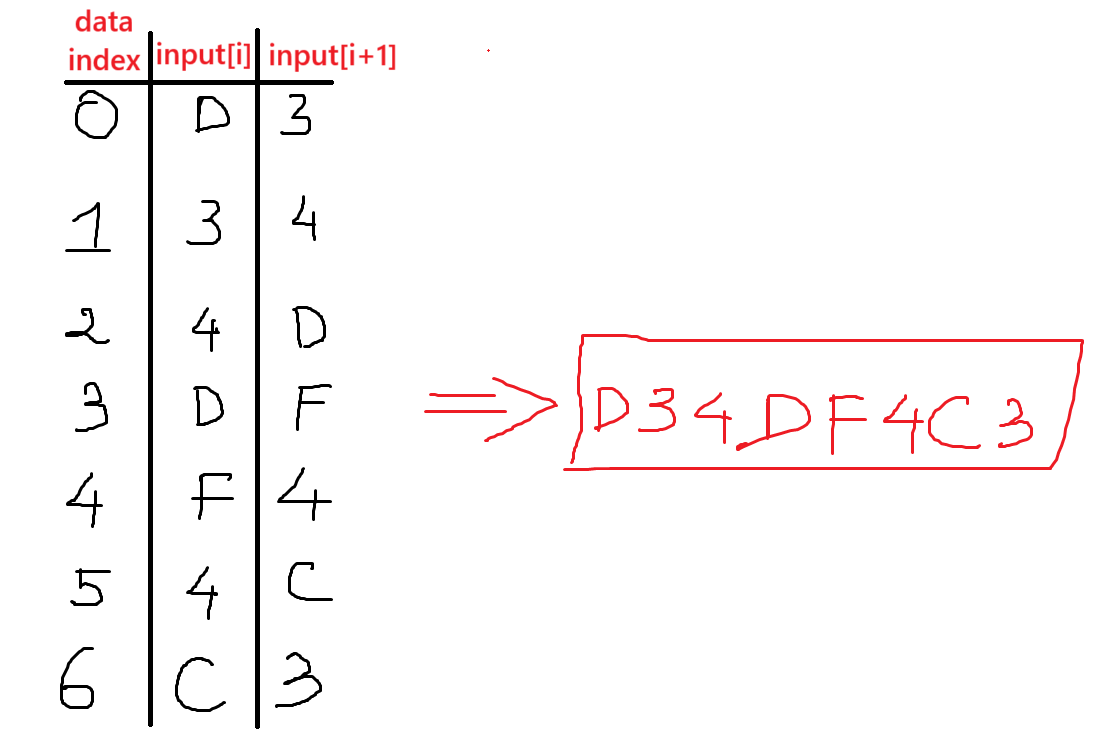 data index input[i] input[i+1]
0 D 3
1 3 4
2 4 D
3 D F
4 F 4
5 4 C
6 C 3
D34DF4C3